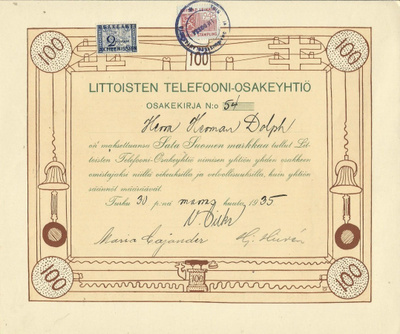 100
100
100
LITTOISTEN TELEFOONI-OSAKEYHTIÖ
OSAKEKIRJA N:o 54
Herra Herman Dolph
on maksettuansa Sata Suomen markkaa tullut Lit-
toisten Telefooni-Osakeyhtiö nimisen yhtiön yhden osakkeen
omistajaksi niillä oikeuksilla ja velvollisuuksilla, kuin yhtiön
säännöt määräävät.
Turku 30 p:nä marras kuuta 1935
Maria Cajander
100
100